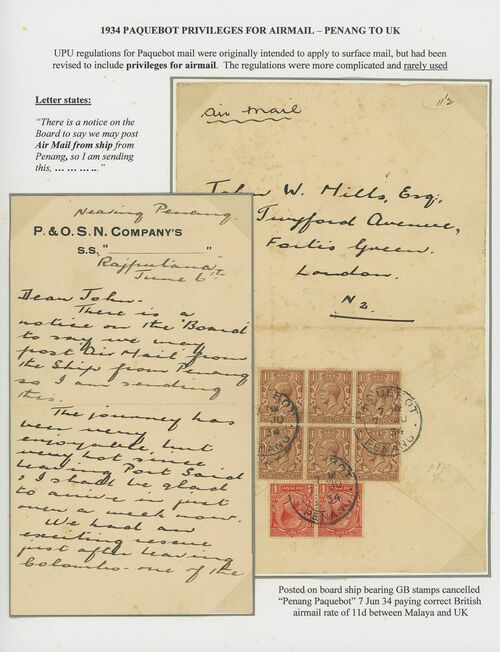 1934 PAQUEBOT PRIVILEGES FOR AIRMAIL – PENANG TO UK
UPU regulations for Paquebot mail were originally intended to apply to surface mail, but had been
revised to include privileges for airmail.  The regulations were more complicated and rarely used
Letter states:
"There is a notice on the
Board to say we may post
Air Mail from ship from
Penang, so I am sending
this, … … … …"
Air Mail
11½
John W. Mills, Esq.,
Twyford Avenue,
Fortis Green.
London.
N 2.
Nearing Penang.
P. & O. S. N. COMPANY'S
S.S. " "
June 6th
Dear John.
There is a
notice on the Board
to say we may
post 'Air Mail' from
the Ship from Penang
so I am sending
this.
The journey has
been very
enjoyable,
very hot since
leaving Port Said
I shall be glad
to arrive in just
over a week now.
We had an
exciting rescue
just after leaving
Colombo - one of the
PAQUEBOT
7 JU
34
PENANG
Posted on board ship bearing GB stamps cancelled
"Penang Paquebot" 7 Jun 34 paying correct British
airmail rate of 11d between Malaya and UK